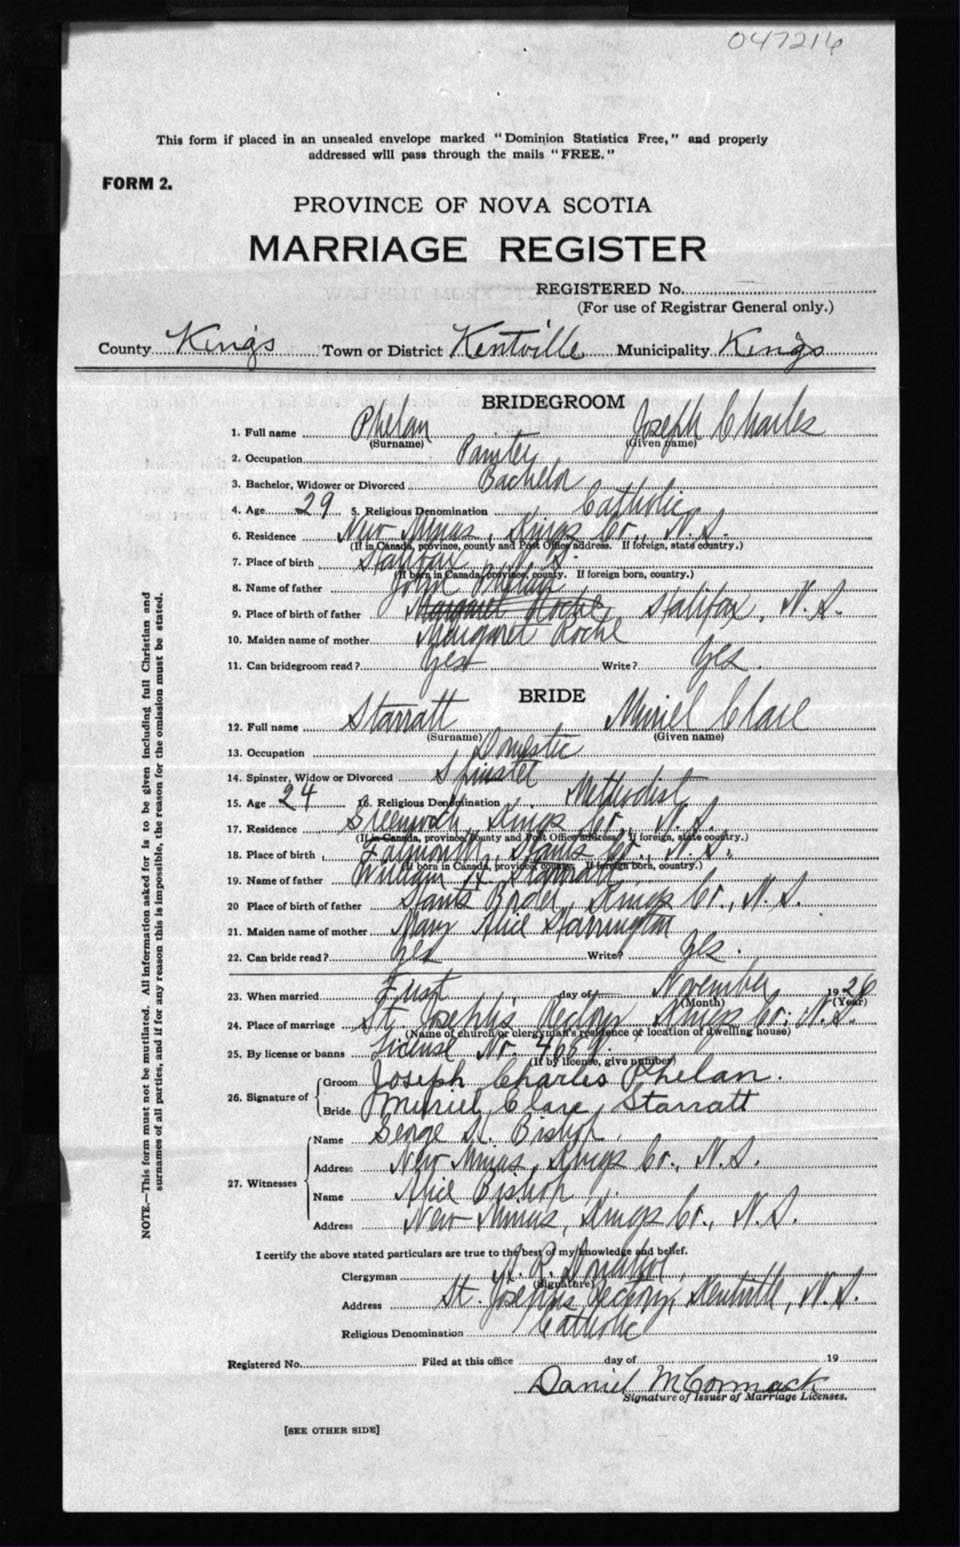 047216
This form if placed in an unsealed envelope marked "Dominion Statistics Free," and properly
addressed will pass through the mails "FREE."
FORM 2.
PROVINCE OF NOVA SCOTIA
MARRIAGE REGISTER
REGISTERED No.
(For use of Registrar General only.)
County Kings Town or District Kentville Municipality Kings
BRIDEGROOM
1. Full name Phelan Joseph Charles
(Surname) (Given name)
2. Occupation Painter
3. Bachelor, Widower or Divorced Bachelor
4. Age 29 5. Religious Denomination Catholic
6. Residence New Minas, Kings Co., N.S.
(If in Canada, province, county and Post Office address. If foreign, state country.)
7. Place of birth Halifax N.S.
(If born in Canada, province, county. If foreign born, country.)
8. Name of father John Phelan
9. Place of birth of father Margaret Roche Halifax, N.S.
10. Maiden name of mother Margaret Roche
11. Can bridegroom read? Yes Write? Yes.
BRIDE
12. Full name Starratt Muriel Clare
(Surname) (Given name)
13. Occupation Domestic
14. Spinster, Widow or Divorced Spinster
15. Age 24 16. Religious Denomination Methodist
17. Residence Greenwich, Kings Co., N.S.
(If in Canada, province, county and Post Office address. If foreign, state country.)
18. Place of birth Falmouth, Hants Co., N.S.
(If born in Canada, province, county. If foreign born, country.)
19. Name of father William Starratt
20 Place of birth of father Hants Border, Kings Co., N.S.
21. Maiden name of mother Mary Alice Harrington
22. Can bride read? Yes Write? Yes.
23. When married First day of November 1926
(Month) (Year)
24. Place of marriage St. Joseph's Rectory Kings Co., N.S.
(Name of church or clergyman's residence or location of dwelling house)
25. By license or banns License Nr.
(If by license, give number)
26. Signature of Groom Joseph Charles Phelan.
Bride Muriel Clare Starratt
27. Witnesses Name George Bishop
Address New Minas, Kings Co., N.S.
Name Alice Bishop
Address New Minas, Kings Co., N.S.
I certify the above stated particulars are true to the best of my knowledge and belief.
Clergyman
(Signature)
Address St. Joseph's Rectory, Kentville, N.S.
Religious Denomination Catholic
Registered No. Filed at this office day of 19
Daniel McCormack
Signature of Issuer of Marriage Licenses.
[SEE OTHER SIDE]
NOTE.—This form must not be mutilated. All information asked for is to be given including full Christian and
surnames of all parties, and if for any reason this is impossible, the reason for the omission must be stated.